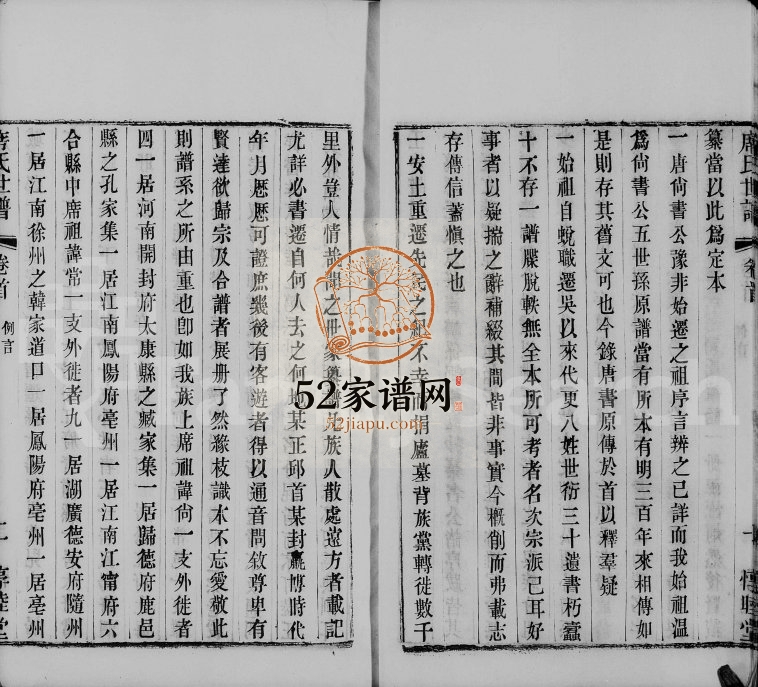 席氏世譜
卷首
一
惇睦堂
纂當以此爲定本
一唐尙書公豫非始遷之祖序言辨之已詳而我始祖温
爲尙書公五世孫原譜當有所本有明三百年來相傳如
是則存其舊文可也今錄唐書原傳於首以釋羣疑
一始祖自蛻職遷吳以來代更八姓世衍三十遺書朽蠹
十不存一譜牒脫軼無全本所可考者名次宗派已耳好
事者以疑揣之辭補綴其間皆非事實今槪削而弗載志
存傳信蓋愼之也
一安土重遷先民之 不幸而捐廬墓背族黨轉徙數千
里外豈人情 族人散處遠方者載記
尤詳必書遷自何人去之何 某正邱首某封嬴博時代
年月厯厯可證庶幾後有客遊者得以通音問敘尊卑有
賢達欲歸宗及合譜者展册了然豫枝識本不忘愛敬此
則譜系之所由重也卽如我族上席祖諱尙一支外徙者
四一居河南開封府太康縣之臧家集一居歸德府鹿邑
縣之孔家集一居江南鳳陽府亳州一居江南江甯府六
合縣中席祖諱常一支外徙者九一居湖廣德安府隨州
一居江南徐州之韓家道口一居鳳陽府亳州一居亳州
席氏世譜
卷首
例言
二
惇睦堂
52家谱网
52jiapu.com